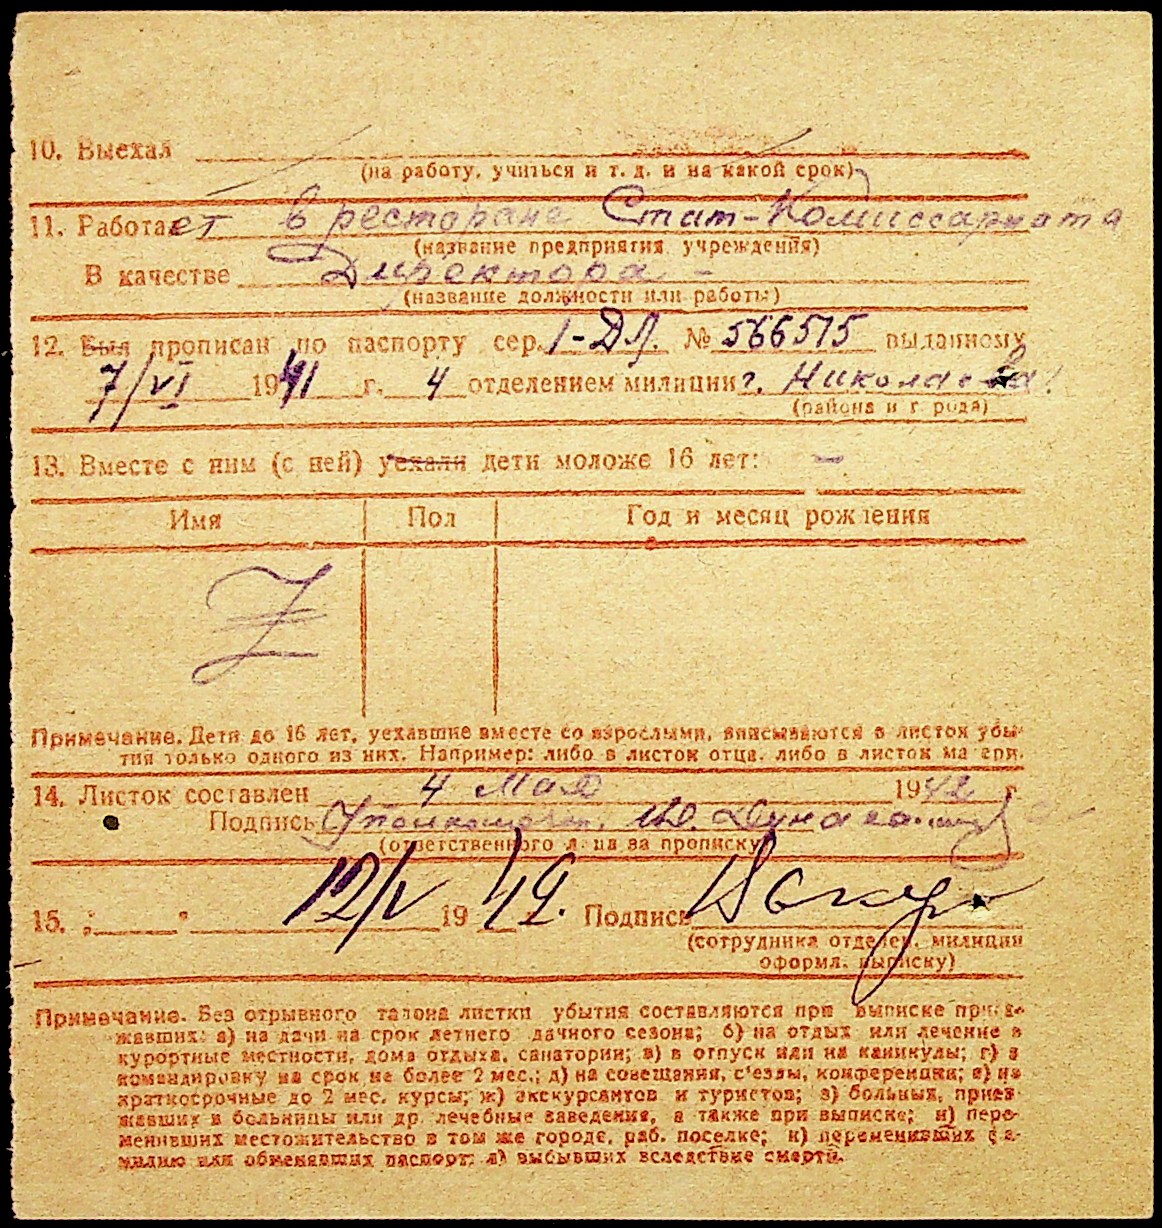 10. Выехал
(на работу, учиться и т. д. и на какой срок)
11. Работает в ресторане Стат-Комиссариата
(название предприятия, учреждения)
В качестве Директора -
(название должности или работы)
12. Был прописан по паспорту сер. I-ДЛ. № 566515 выданному
7/VI 1941 г. 4 отделением милиции г. Николаева.
(района и города)
13. Вместе с ним (с ней) уехали дети моложе 16 лет: –
Имя Пол Год и месяц рождения
Z
Примечание. Дети до 16 лет, уехавшие вместе со взрослыми, вписываются в листок убы-
тия только одного из них. Например: либо в листок отца, либо в листок матери.
14. Листок составлен 4 Мая 1942 г.
Подпись
(ответственного лица за прописку)
15. 12/V 1942. Подпись
(сотрудника отделен. милиции
оформл. выписку)
Примечание. Без отрывного талона листки убытия составляются при выписке приез-
жавших: а) на дачи на срок летнего дачного сезона; б) на отдых или лечение в
курортные местности, дома отдыха, санатории; в) в отпуск или на каникулы; г) в
командировку на срок не более 2 мес.; д) на совещания, с'езды, конференции; е) на
краткосрочные до 2 мес. курсы; ж) экскурсантов и туристов; з) больных, приез-
жавших в больницы или др. лечебные заведения, а также при выписке; и) пере-
менивших местожительство в том же городе, раб. поселке; к) переменивших фа-
милию или обменявших паспорт; л) выбывших вследствие смерти.